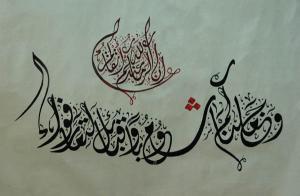 إن أكرمكم عند الله أتقاكم
وجعلناكم شعوبا وقبائل لتعارفوا